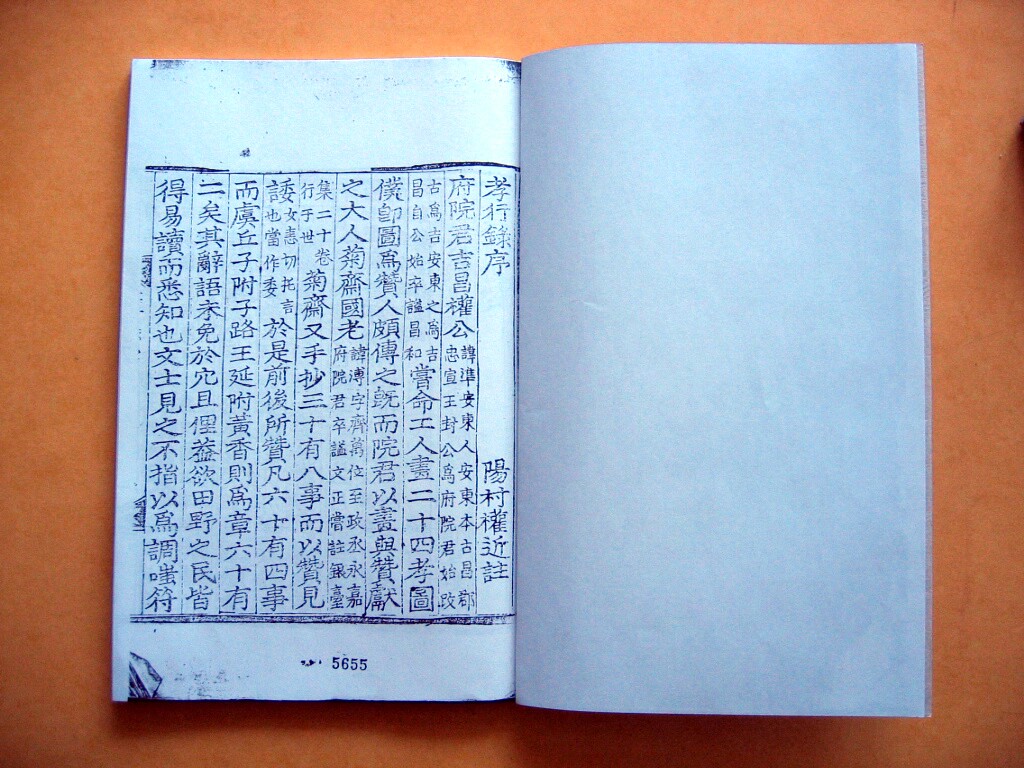 孝行錄序 陽村權近註
府院君吉昌權公 諱準安東人安東本古昌郡
忠宣王封公爲府院君始改
古爲吉安東之爲吉
昌自公始卒謚昌和 嘗命工人畫二十四孝圖
僕卽圖爲贊人頗傳之旣而院君以畫與贊獻
之大人菊齋國老 諱溥字齊萬位至政丞永嘉
府院君卒謚文正嘗註銀臺
集二十卷
行于世 菊齋又手抄三十有八事而以贊見
諉 女恚切托言
也當作委 於是前後所贊凡六十有四事
而虞丘子附子路王延附黃香則爲章六十有
二矣其辭語未免於冗且俚蓋欲田野之民皆
得易讀而悉知也文士見之不指以爲調嗤符
5655